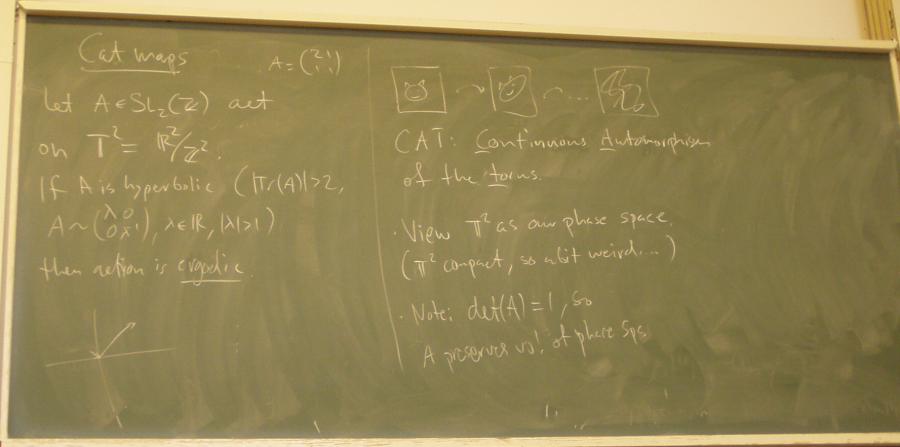 Cat maps
A = (2 1
1 1)
Let A ∈ SL₂(ℤ) act
on 𝕋² = ℝ²/ℤ².
If A is hyperbolic (|Tr(A)|>2,
A ~ (λ 0
0 λ⁻¹), λ∈ℝ, |λ|>1)
then action is ergodic.
CAT: Continuous Automorphism
of the torus.
· View 𝕋² as our phase space.
(𝕋² compact, so a bit weird...)
· Note: det(A) = 1, so
A preserves vol. of phase sps